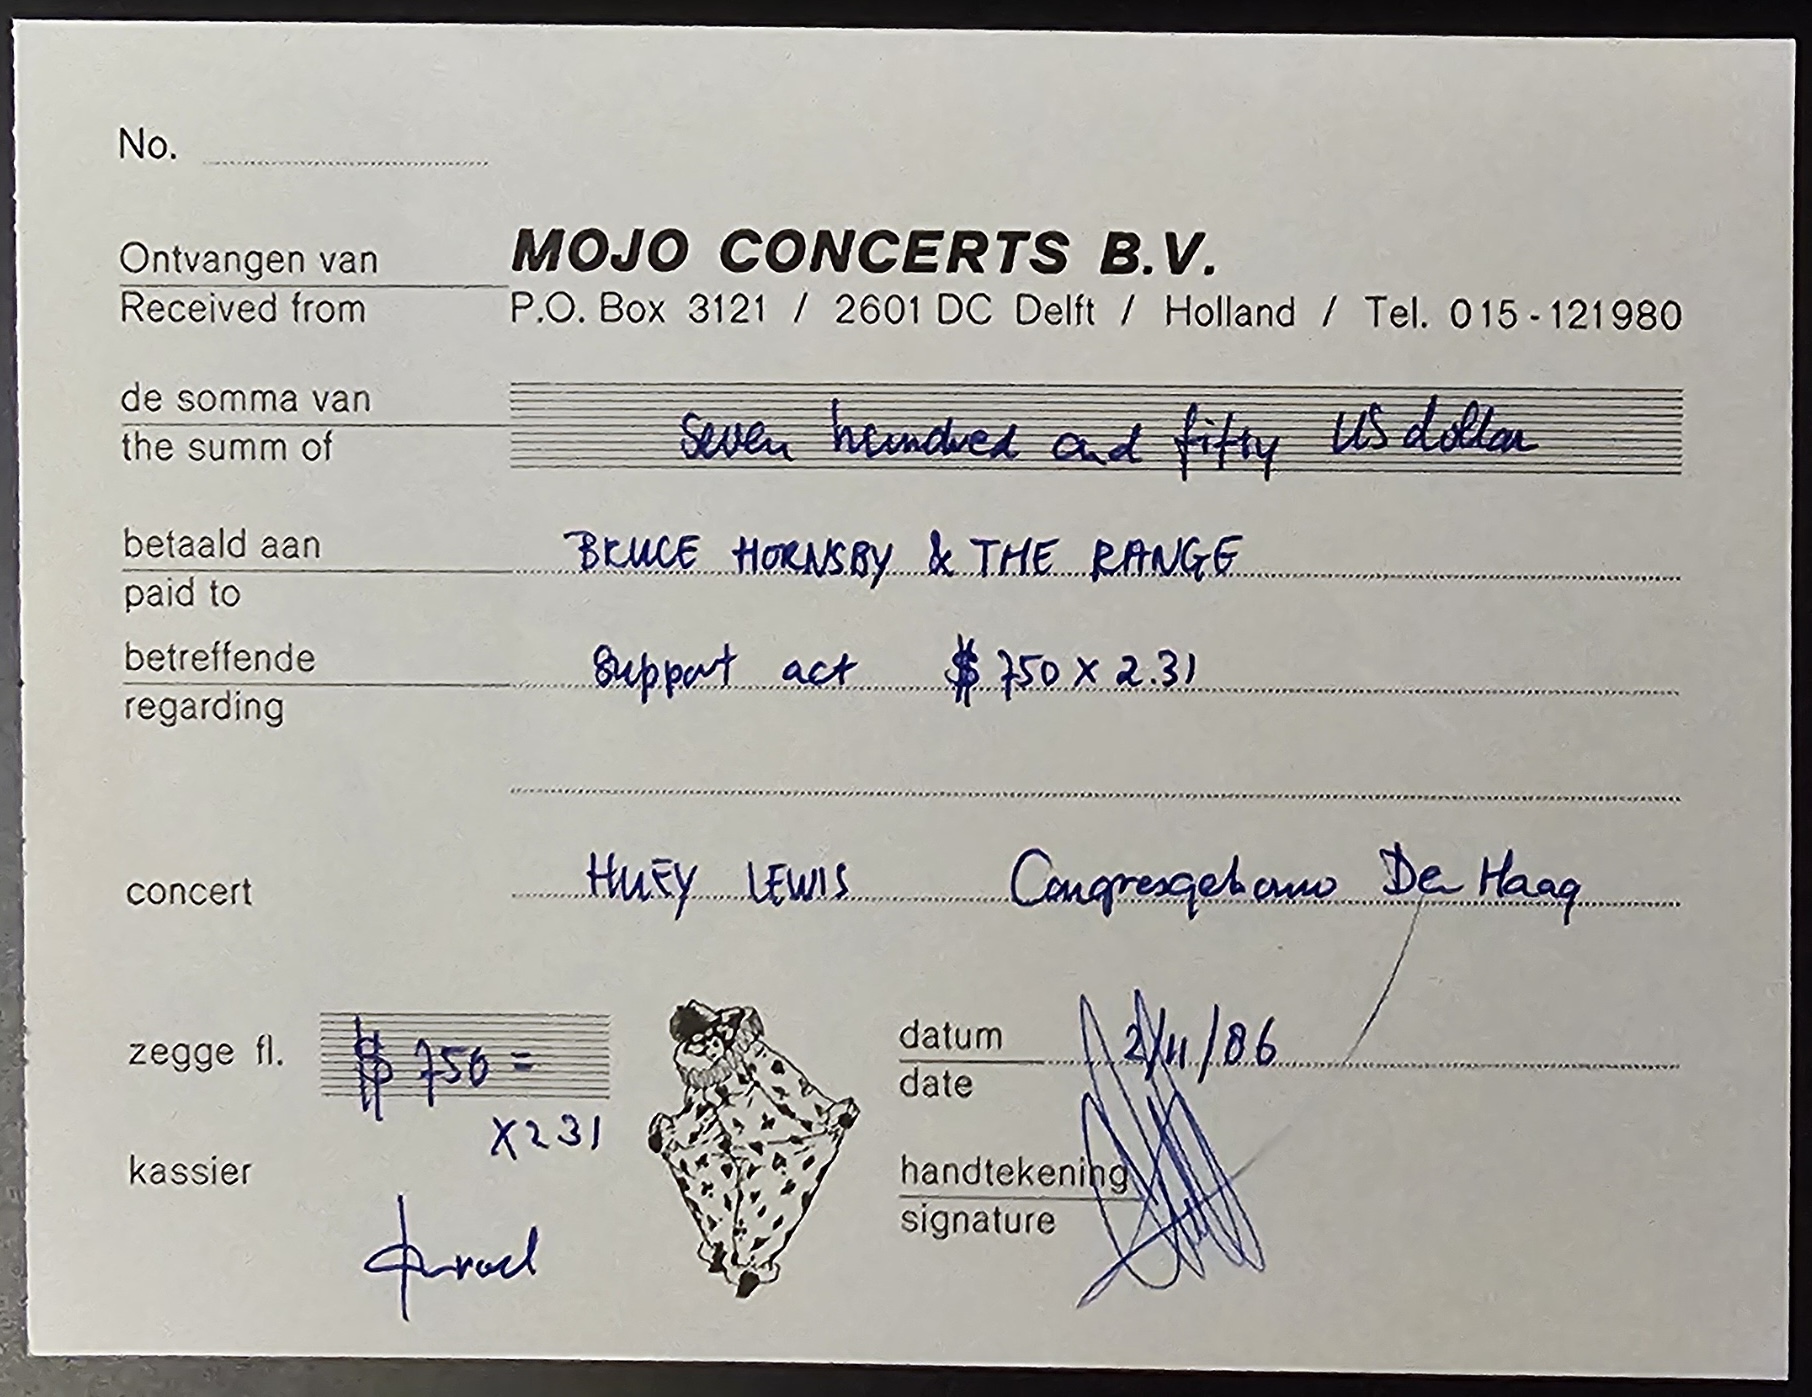 No.
Ontvangen van MOJO CONCERTS B.V.
Received from P.O. Box 3121 / 2601 DC Delft / Holland / Tel. 015-121980
de somma van
the summ of seven hundred and fifty US dollar
betaald aan BRUCE HORNSBY & THE RANGE
paid to
betreffende support act $ 750 x 2.31
regarding
concert HUEY LEWIS Congresgebouw Den Haag
zegge fl. $ 750 =
x 231
datum 2/11/86
date
kassier
handtekening
signature